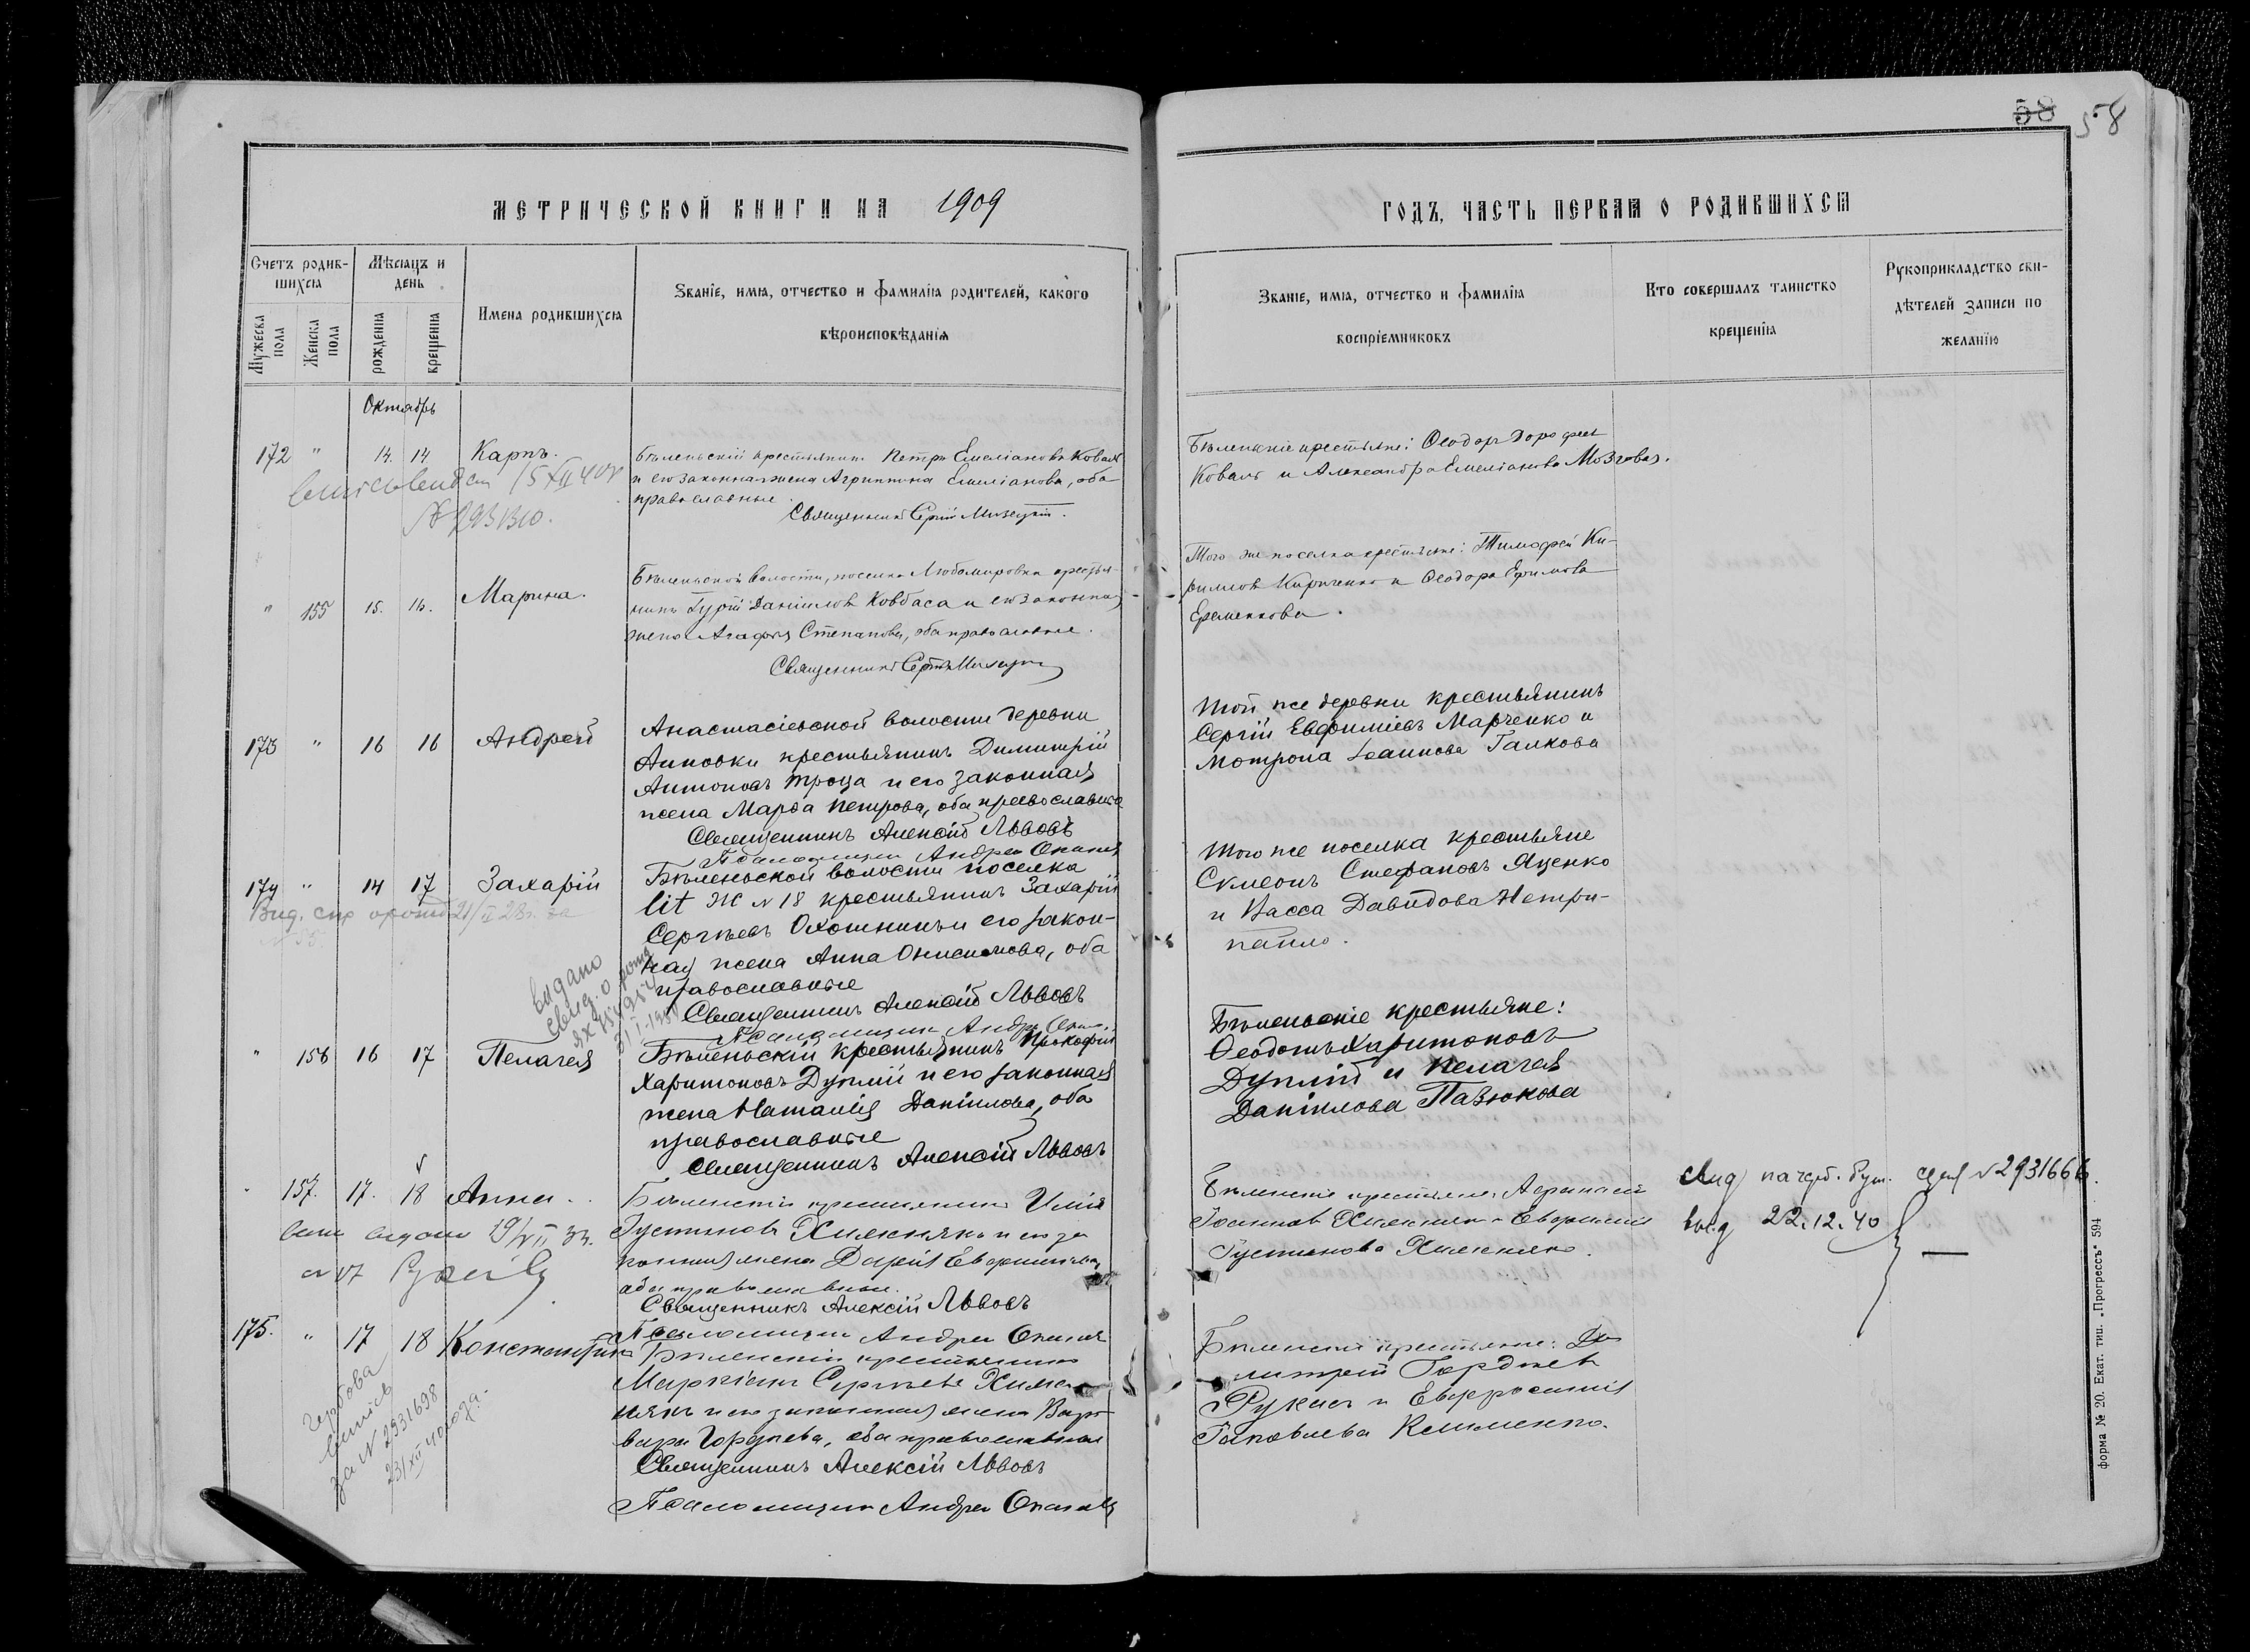 58 58
МЕТРИЧЕСКОЙ КНИГИ НА 1909
ГОДЪ, ЧАСТЬ ПЕРВАЯ О РОДИВШИХСЯ
Счетъ родив-
шихся
Мужеска пола
Женска пола
Мѣсяцъ и
день
рожденія
крещенія
Имена родившихся
Званіе, имя, отчество и фамилія родителей, какого
вѣроисповѣданія
Званіе, имя, отчество и фамилія
воспріемниковъ
Кто совершалъ таинство
крещенія
Рукоприкладство сви-
дѣтелей записи по
желанію
Октябрь
172 " 14. 14 Карпъ.
Бѣленьскій крестьянинъ Петръ Емеліановъ Коваль
и его законная жена Агриппина Емеліанова, оба
православные.
Священникъ Сергій
Бѣленьскіе крестьяне: Ѳеодоръ Дорофеев
Коваль и Александра Емеліанова Мозговая.
" 155 15. 16. Марина.
Бѣленьской волости, поселка Любомировка крестья-
нинъ Гурій Даніиловъ Ковбаса и его законная
жена Агафія Степанова, оба православные.
Священникъ
Того же поселка крестьяне: Тимофей Ки-
рилловъ Кириченко и Ѳеодора Ефимова
Еременкова.
173 " 16 16 Андрей
Анастасіевской волости деревни
Анновки крестьянинъ Димитрій
Антоновъ Троца и его законная
жена Марѳа Петрова, оба православные
Священникъ Алексій Львовъ
Псаломщикъ Андрей
Той же деревни крестьянинъ
Сергій Евфиміевъ Марченко и
Мотрона Іоаннова Галкова
174 " 14 17 Захарій
Бѣленьской волости поселка
lit Ж N 18 крестьянинъ Захарій
Сергѣевъ Охотникъ и его закон-
ная жена Анна Онисимова, оба
православные
Священникъ Алексій Львовъ
Псаломщикъ Андрей
Того же поселка крестьяне
Симеонъ Стефановъ Яценко
и Васса Давидова Нетри-
пайло.
выдано
свид. о рожд
" 156 16 17 Пелагея
Бѣленьскій крестьянинъ Прокофій
Харитоновъ Дуплій и его законная
жена Наталія Даніилова, оба
православные
Священникъ Алексій Львовъ
Бѣленьскіе крестьяне:
Ѳеодотъ Харитоновъ
Дуплій и Пелагея
Даніилова Павлюкова
157. 17. 18 Анна.
Бѣленскій крестьянинъ Илія
Іустиновъ Хижнякъ и его за
конная жена Дарія
оба православные.
Священникъ Алексій Львовъ
Псаломщикъ Андрей
Бѣленскіе крестьяне, Афанасій
Іоанновъ Хижнякъ и Евфимія
Іустинова Хижнякъ.
N 2931666
выд 22.12.40
175. " 17 18 Константинъ
Бѣленскій крестьянинъ
Маркіанъ Сергѣевъ Хиж-
някъ и его законная жена Вар-
вара Гордѣева, оба православные
Священникъ Алексій Львовъ
Псаломщикъ Андрей
Бѣленскіе крестьяне: Ди-
митрій Гордѣев
и Евфросинія
Яковлева Клименко.
за N 2931698
23/XII 40 года.
форма № 20. Екат. тип. „Прогрессъ" 594